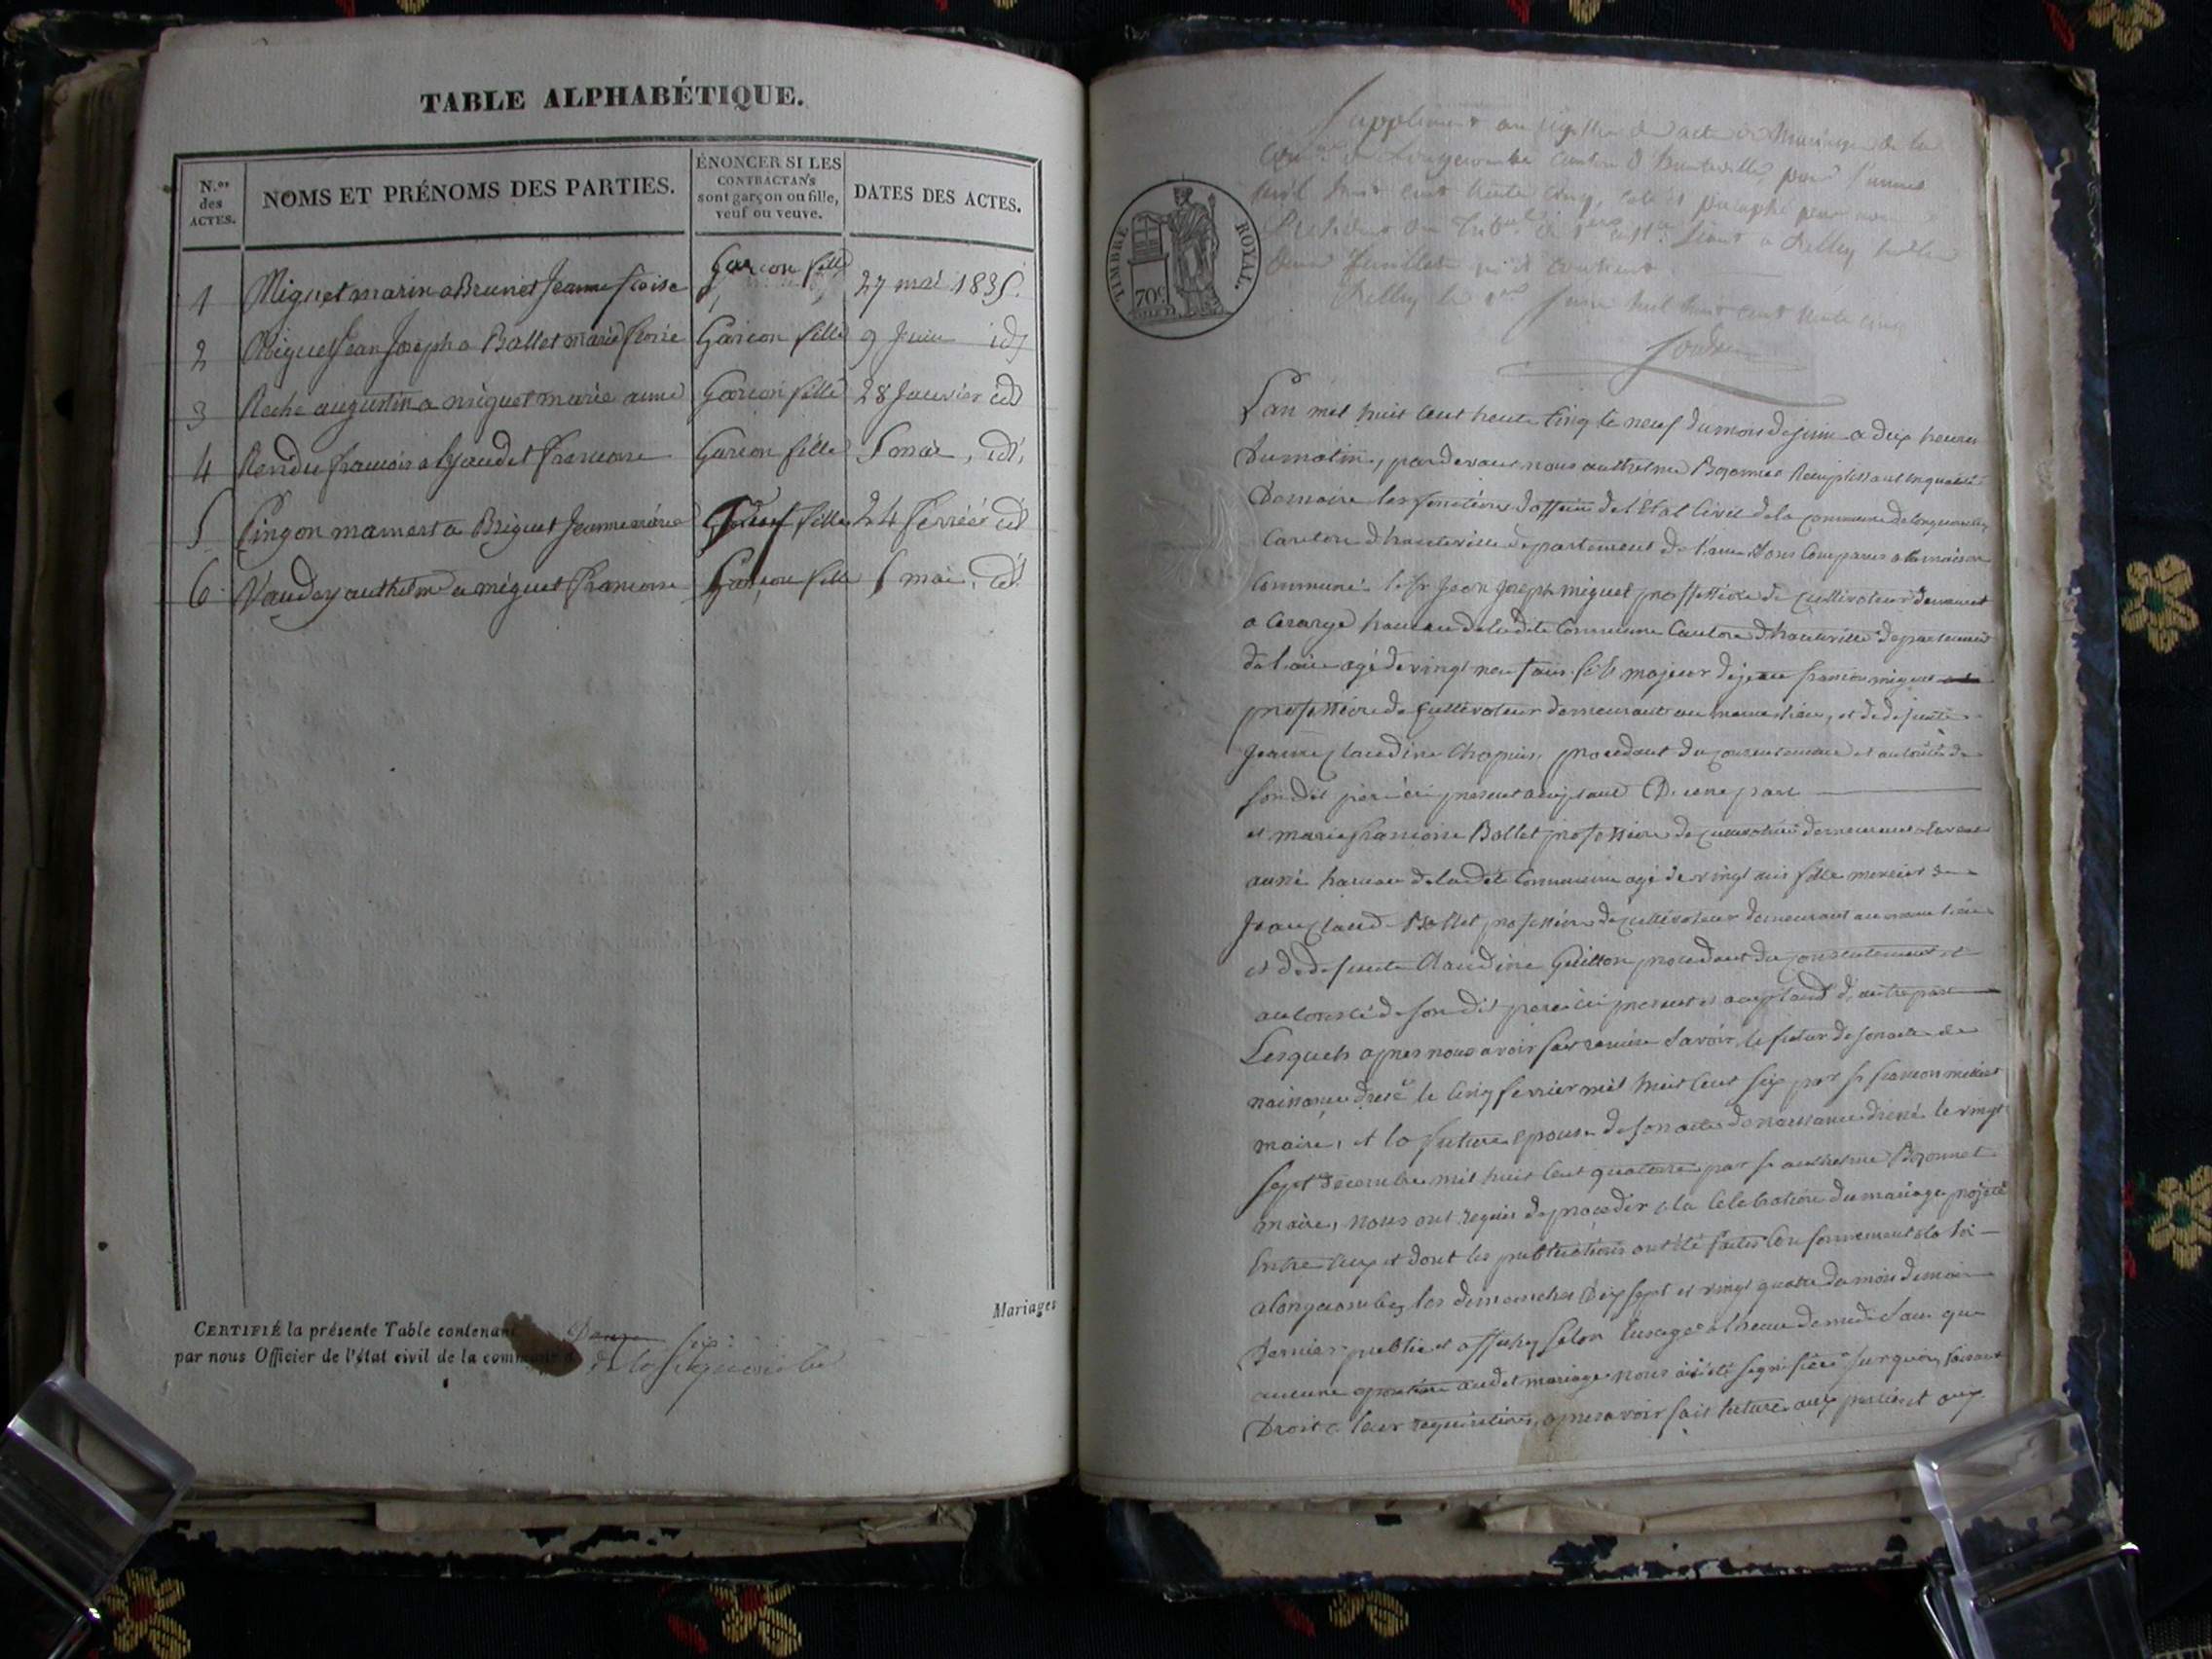 TABLE ALPHABÉTIQUE.
N.os des ACTES.
NOMS ET PRÉNOMS DES PARTIES.
ÉNONCER SI LES
CONTRACTANS
sont garçon ou fille,
veuf ou veuve.
DATES DES ACTES.
1 Miguet marin a Brunet Jeanne fcoise Garcon fille 27 mai 1835.
2 Miguet Jean Joseph a Ballet marie fcoise Garcon fille 9 Juin id
3 Roche augustin a miguet marie anne Garcon fille 28 Janvier id
4 Rendu francois a francoise Garcon fille 5 mai, id,
5 Pingon mamert a Briguet Jeanne marie fille 24 id
6 Vaudey anthelme a miguet francoise Garcon fille 5 mai, id.
Mariages
CERTIFIÉ la présente Table contenant six
par nous Officier de l'état civil de la commune d
TIMBRE ROYAL.
70c
Supplement au registre de actes de Mariage de la
Com.ne de Longecombe canton d'hauteville, pour l'année
mil huit cent trente cinq, coté et paraphé par nous
Président du de 1ere a Belley
deux feuillets qu'il contient
Belley le 1er Juin mil huit cent trente cinq
L'an mil huit cent trente cinq le neuf du mois de juin a dix heures
du matin, pardevant nous anthelme Bozonnet Remplissant en qualité
de maire les fonctions d'officier de l'état civil de la commune de longecombe
Canton d'hauteville departement de l'ain sont Comparus a la maison
Commune le sr Jean Joseph miguet proffession de cultivateur demeurant
a hameau de ladite Commune Canton d'hauteville departement
de l'ain agé de vingt neuf ans fils majeur de jean francois miguet
profession de cultivateur demeurant au meme lieu, et de defunte
jeanne claudine Chapuis, procedant du consentement et autorité de
son dit père ici présent acceptant D. une part
et marie francoise Ballet profession de demeurant
hameau de ladite Commune agé de vingt ans fille mineure de
jean claude Ballet profession de cultivateur demeurant au meme lieu
et de defunte Claudine Guillon procedant du consentement et
autorité de son dit pere ici present et acceptant d, autre part
Lesquels apres nous avoir fait remise savoir, le futur de son acte de
naissance dressé le cinq fevrier mil huit cent six par sr francois millet
maire, et la future epouse de son acte de naissance dressé le vingt
sept decembre mil huit cent quatorze par sr anthelme Bozonnet
maire, nous ont requis de proceder a la Celebration du mariage projetté
Entre eux et dont les publications ont été faites Conformement a la loi
a longecombe, les dimanches dix sept et vingt quatre du mois de mai
dernier publié et affiché selon l'usage a l'heure de midi sans que
aucune opposition audit mariage nous ait été signifiée sur quoi, faisant
Droit a leur requisition, apres avoir fait lecture aux parties et aux